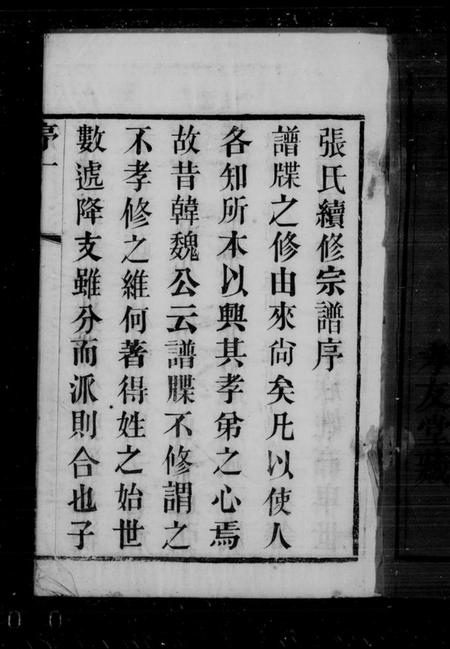 張氏續修宗譜序
譜牒之修由來尚矣凡以使人
各知所本以興其孝弟之心焉
故昔韓魏公云譜牒不修謂之
不孝修之維何著得姓之始世
數遞降支雖分而派則合也子
序一
孝友堂藏